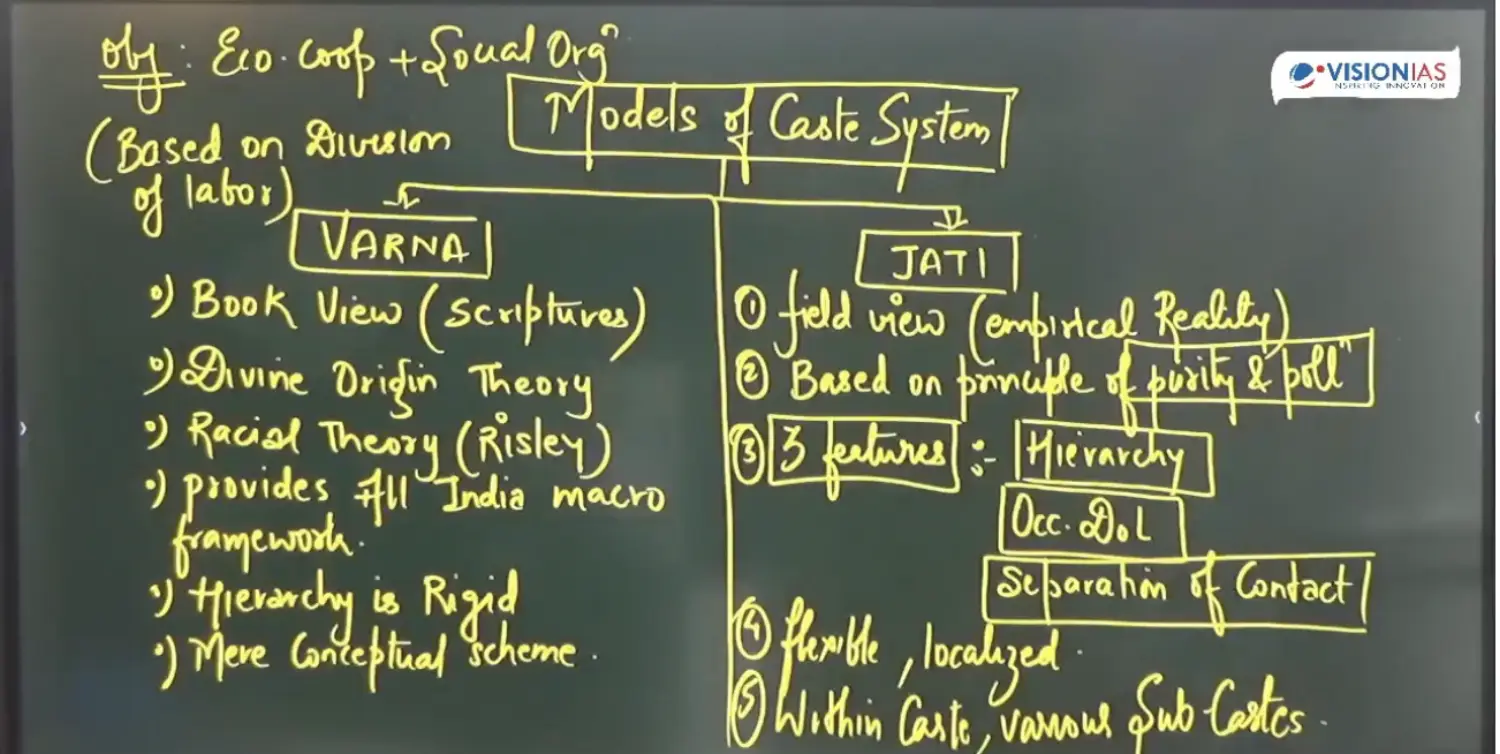 Obj : Eco. Coop + Social Orgⁿ
(Based on Division
of labor)
VISIONIAS
INSPIRING INNOVATION
Models of Caste System
VARNA
•) Book View (Scriptures)
•) Divine Origin Theory
•) Racial Theory (Risley)
•) provides All India macro
framework.
•) Hierarchy is Rigid
•) Mere Conceptual scheme.
JATI
① field view (empirical Reality)
② Based on principle of purity & pollⁿ
③ 3 features :- Hierarchy
Occ. DoL
Separation of Contact
④ flexible, localized.
⑤ Within Caste, various Sub-Castes.